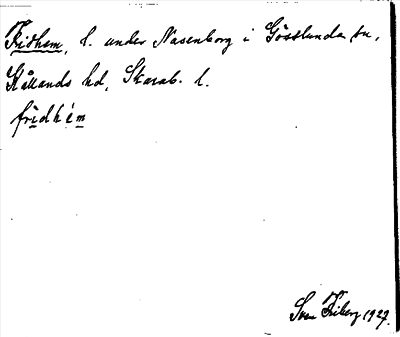 Fridhem, l. under Nasenborg i Gösslunda sn,
Kållands hd, Skarab. l.
fridhèm
Sven Friberg 1927.